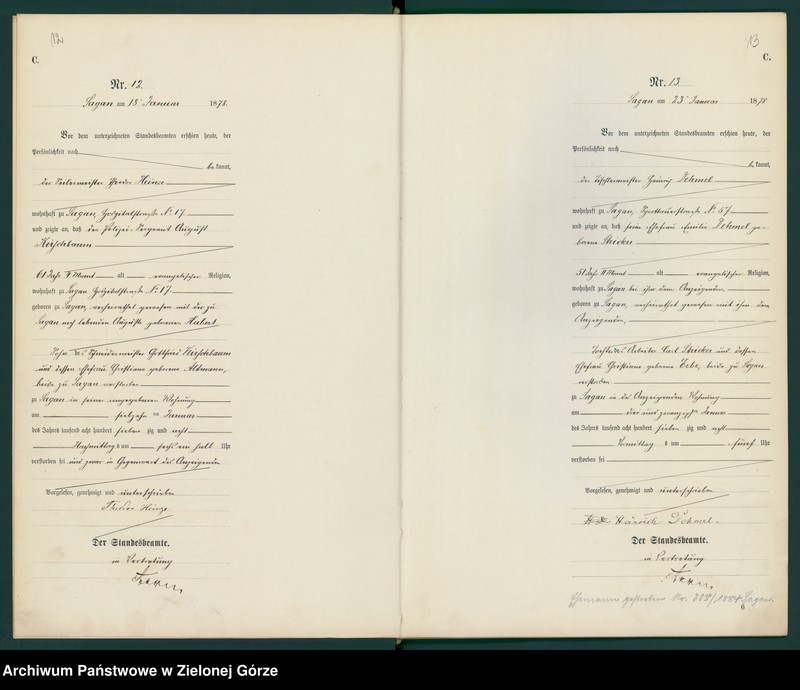 12
C.
Nr. 12.
Sagan am 18 Januar 1878.
Vor dem unterzeichneten Standesbeamten erschien heute, der
Persönlichkeit nach
be kannt,
der Seilermeister Theodor Heinze
wohnhaft zu Sagan, Hospitalstraße No 17.
und zeigte an, daß der Polizei-Sergeant August
Kirschbaum
61 Jahr 4 Monat alt evangelischer Religion,
wohnhaft zu Sagan Hospitalstraße No 17.
geboren zu Sagan, verheirathet gewesen mit der zu
Sagan noch lebenden Auguste geborenen Hubert
Sohn des Schneidermeister Gottfried Kirschbaum
und dessen Ehefrau Christiane geborene Altmann,
beide zu Sagan verstorben
zu Sagan in seiner angegebenen Wohnung
am Januar
des Jahres tausend acht hundert sieben zig und acht
Nachmittag s um sechs ein halb Uhr
verstorben sei und zwar in Gegenwart des Anzeigenden
Vorgelesen, genehmigt und unterschrieben
Theodor Heinze
Der Standesbeamte.
in Vertretung
13
C.
Nr. 13
Sagan am 23 Januar 1878
Vor dem unterzeichneten Standesbeamten erschien heute, der
Persönlichkeit nach
be kannt,
der Tischlermeister Heinrich Dehmel
wohnhaft zu Sagan, Sprottauerstraße No 57
und zeigte an, daß seine Ehefrau Emilie Dehmel ge-
borene Stricker
51 Jahr Monat alt evangelischer Religion,
wohnhaft zu Sagan bei ihm dem Anzeigenden,
geboren zu Sagan, verheirathet gewesen mit ihm dem
Anzeigenden,
Tochter des Arbeiter Carl Stricker und dessen
Ehefrau Christiane geborene beide zu Sagan
verstorben
zu Sagan in des Anzeigenden Wohnung
am drei und zwanzigsten Januar
des Jahres tausend acht hundert sieben zig und acht
Vormittag s um fünf Uhr
verstorben sei
Vorgelesen, genehmigt und unterschrieben
Heinrich Dehmel.
Der Standesbeamte.
in Vertretung
Ehemann gestorben No. 1884 Sagan.
6
Archiwum Państwowe w Zielonej Górze